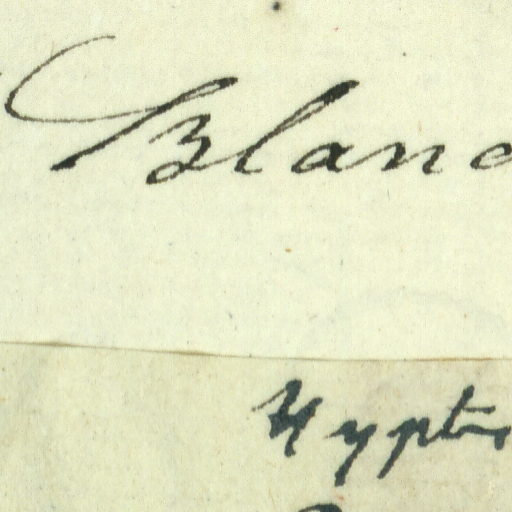 Blanc
Hyptis